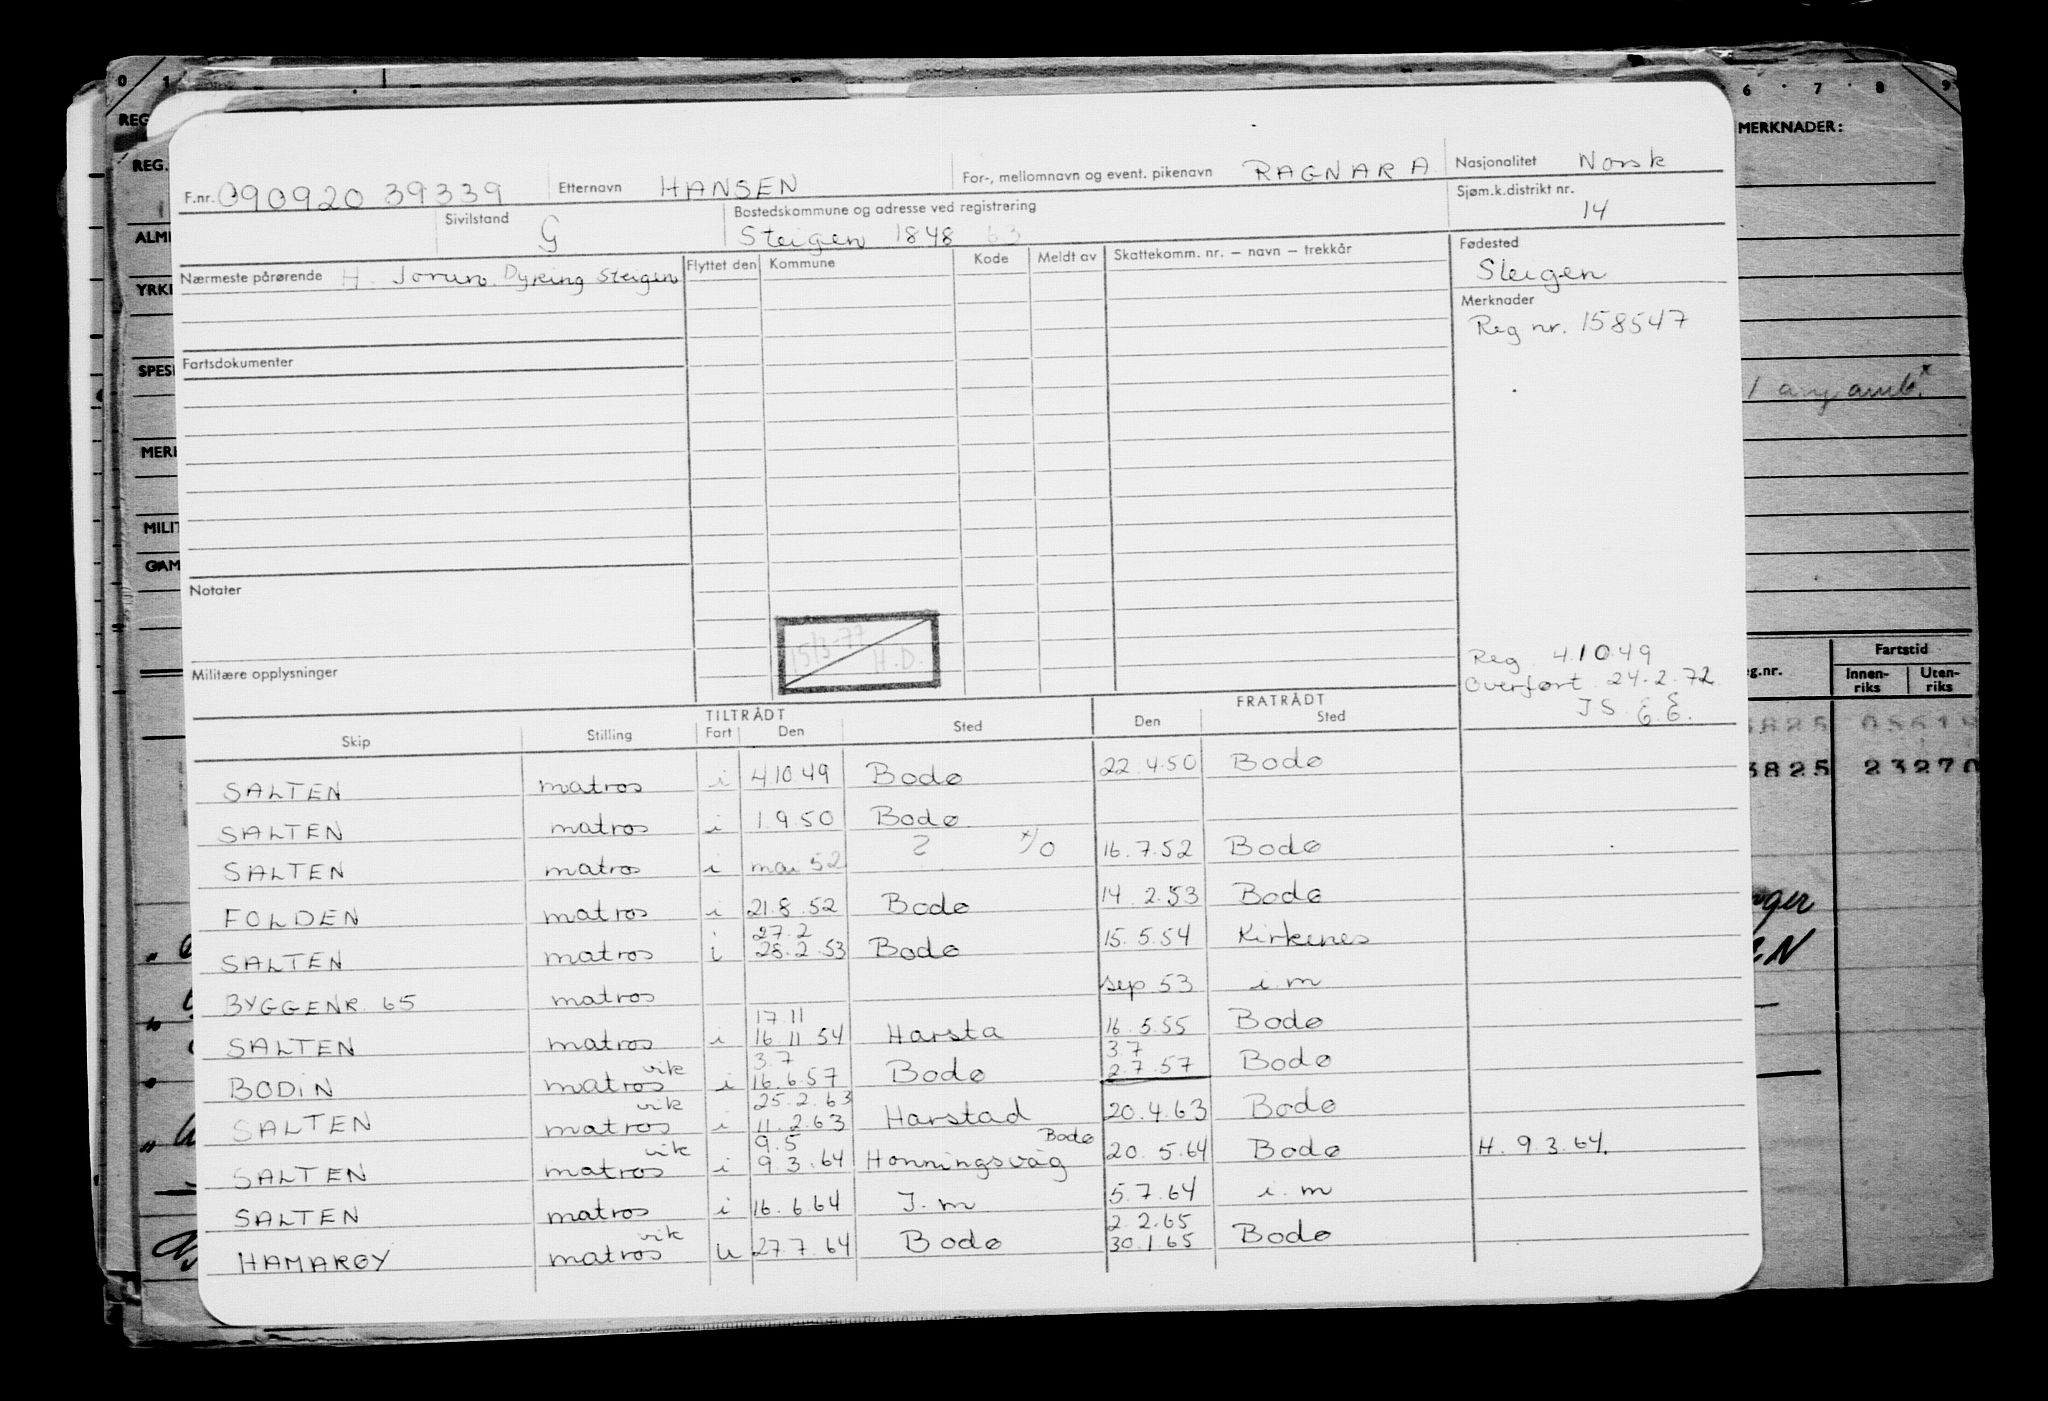 0 1 6 7 8 9
REG
MERKNADER:
REG.
F.nr. 090920 39339 Etternavn HANSEN For-, mellomnavn og event. pikenavn RAGNAR A Nasjonalitet Norsk
Sivilstand G Bostedskommune og adresse ved registrering Steigen 1848 63 Sjøm.k.distrikt nr. 14
ALM
Nærmeste pårørende H. Jorun Dyping Steigen Flyttet den Kommune Kode Meldt av Skattekomm. nr. – navn – trekkår Fødested Steigen
YRK
Merknader
Reg nr. 158547
Fartsdokumenter
SPES
MERK
MILIT
GAM
Notater
15/3-77
H.D.
Militære opplysninger
Reg 41049
Overført 24.2.72
J S. E.E.
g.nr. Fartstid
Innen-riks Uten-riks
3825 05614
3825 23270
TILTRÅDT FRATRÅDT
Skip Stilling Fart Den Sted Den Sted
SALTEN matros i 41049 Bodø 22.4.50 Bodø
SALTEN matros i 1950 Bodø
SALTEN matros i mai 52 ? x/o 16.7.52 Bodø
FOLDEN matros i 21.8.52 Bodø 14.2.53 Bodø
27.2
SALTEN matros i 28.2.53 Bodø 15.5.54 Kirkenes
BYGGENR. 65 matros sep 53 i m
17.11
SALTEN matros i 16 11 54 Harsta 16.5.55 Bodø
vik 3.7 3 7
BODIN matros i 16.6.57 Bodø 2.7.57 Bodø
vik 25.2.63
SALTEN matros i 11.2.63 Harstad 20.4.63 Bodø
vik 9.5 Bodø
SALTEN matros i 9 3.64 Honningsvåg 20.5.64 Bodø H. 9.3.64.
SALTEN matros i 16.6.64 I. m 5.7.64 i. m
vik 2.2.65
HAMARØY matros u 27.7.64 Bodø 30.1.65 Bodø